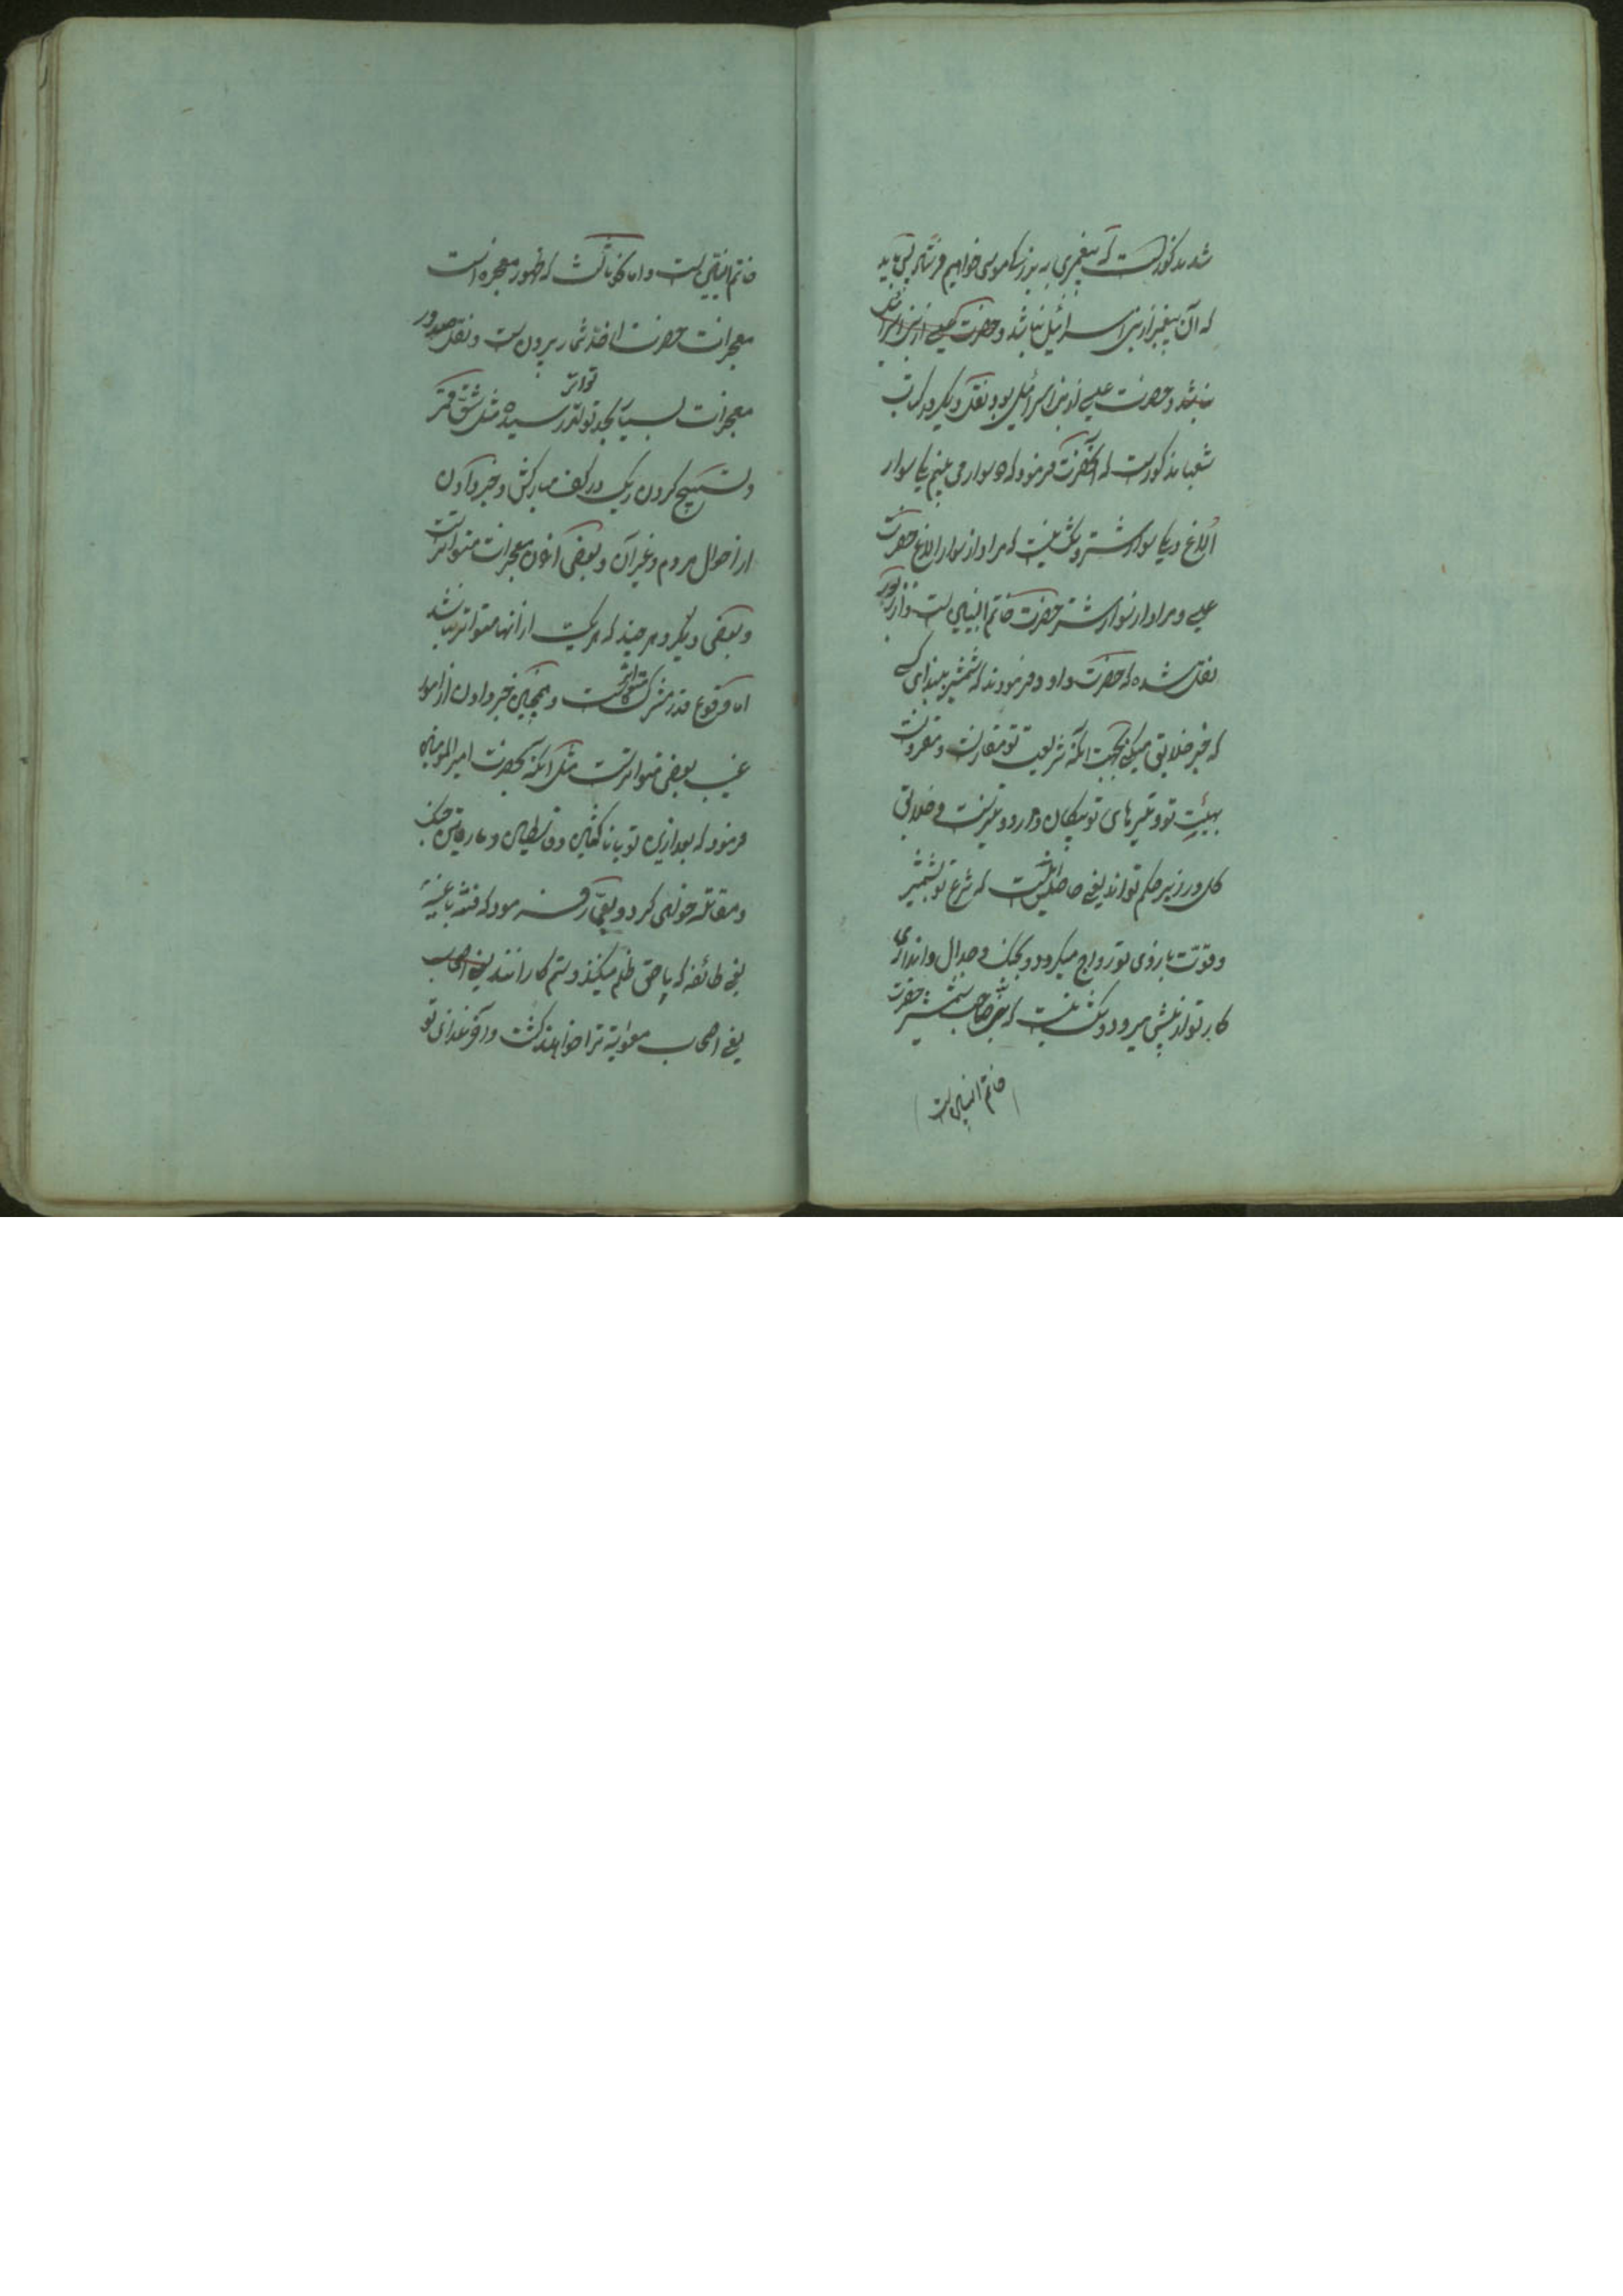 شد مذکور است که پیغمبری به بزرگی موسی خواهیم فرستاد پس باید
که آن پیغمبر از بنی اسرائیل نباشد و حضرت عیسی از بنی اسرائیل
نباشد و حضرت عیسی از بنی اسرائیل بود و نقل دیگر در کتاب
شعیا مذکور است که آنحضرت فرمود که دو سوار می بینم یکی سوار
الاغ و یکی سوار شتر و شک نیست که مراد از سوار الاغ حضرت
عیسی و مراد از سوار شتر حضرت خاتم انبیاست و از زبور
نقل شده که حضرت داود فرمودند که شمشیر بند ای کسی
که خبر خلایق میکنی بجهت آنکه شریعت تو مقارنت و مقرونست
بهیبت تو و تیرهای تو پیکان دارد و تیزست و خلایق
کل در زیر حکم تواند یعنی حاصلش اینست که شرع تو بشمشیر
و قوت بازوی تو رواج میگیرد و بجنگ و جدال و تیراندازی
کار تو از پیش میرود و شک نیست که پیغمبر صاحب شمشیر حضرت
خاتم انبیاست
خاتم النبیین است و اما کبری آنست که ظهور معجزه است
معجزات حضرت از حد شمار بیرون است و نقل صدور
معجزات بسیار بحد تواتر رسیده مثل شق قمر
و تسبیح کردن ریگ در کف مبارکش و خبر دادن
از احوال مردم و غیر آن و بعضی از آن معجزات متواتر است
و بعضی دیگر و هر چند که هر یک از آنها متواتر نباشد
اما وقوع قدر مشترک متواتر است و همچنین خبر دادن از امور
غیب بعضی متواترست مثل آنکه بحضرت امیرالمومنین
فرمود که بعد از من تو با ناکثین و قاسطین و مارقین جنگ
و مقاتله خواهی کرد و بعمار فرمود که فئه باغیه
یعنی طائفه که بناحق ظلم میکنند و ستم کارانند یعنی اصحاب
یعنی اصحاب معویه ترا خواهند کشت و آخر غذای تو